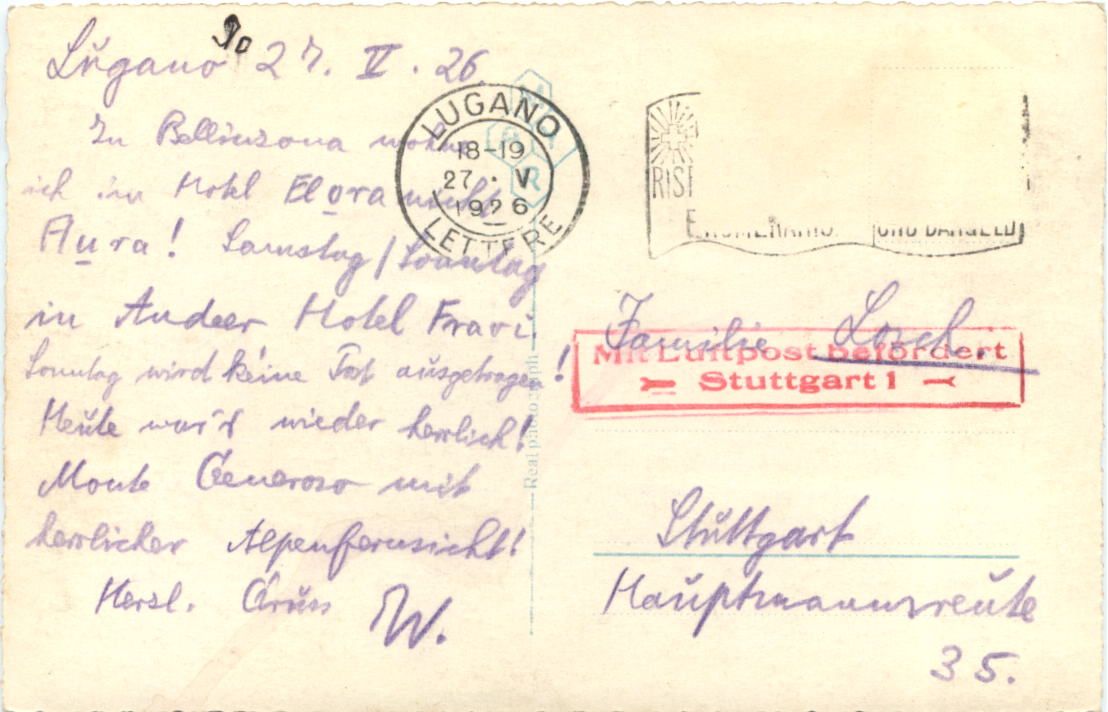 Lugano 27. V. 26
In Bellinzona wohne
ich im Hotel Elora nicht
Aura! Samstag/Sonntag
in Andeer Hotel Fravi
Sonntag wird keine Post ausgetragen!
Heute war's wieder herrlich!
Monte Generoso mit
herrlicher Alpenfernsicht!
Herzl. Gruss W.
LUGANO
18-19
27. V
1926
LETTERE
Real photograph
UND BARGELD
Familie Losch.
Mit Luftpost befördert
Stuttgart 1
Stuttgart
Hauptmannsreute
35.